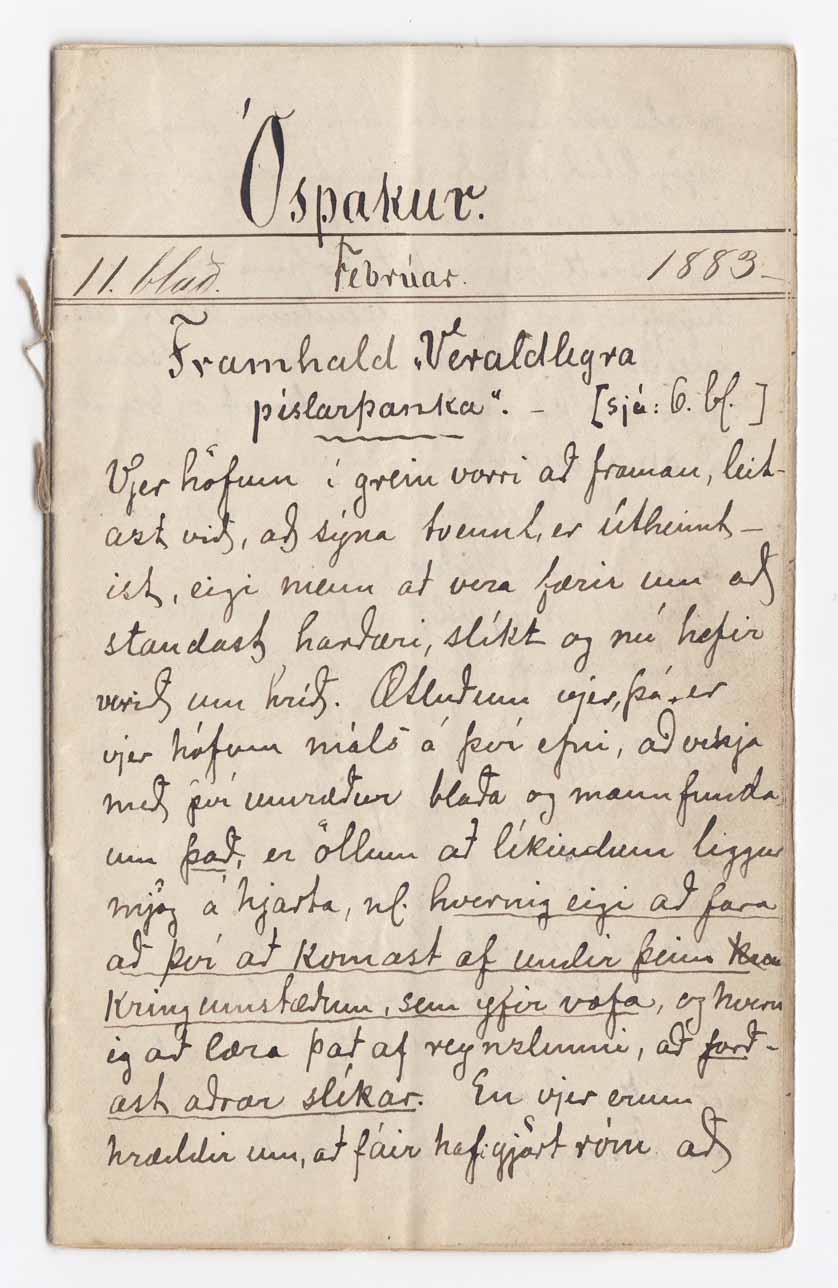 Óspakur.
11. blað. Febrúar. 1883-
Framhald „Veraldlegra
píslarþanka“. - [sjá: 6. bl.]
Vjer höfum í grein vorri að framan, leit-
ast við, að sýna tvennt, er útheimt-
ist, eigi menn að vera færir um að
standast harðæri, slíkt og nú hefir
verið um hríð. Ætluðum vjer, þá er
vjer hófum máls á því efni, að vekja
með því umræður blaða og mannfunda
um það, er öllum að líkindum liggur
mjög á hjarta, nfl. hvernig eigi að fara
að því að komast af undir þeim
kringumstæðum, sem yfir vofa, og hvern
ig að læra það af reynslunni, að forð-
ast aðrar slíkar. En vjer erum
hræddir um, að fáir hafi gjört róm að